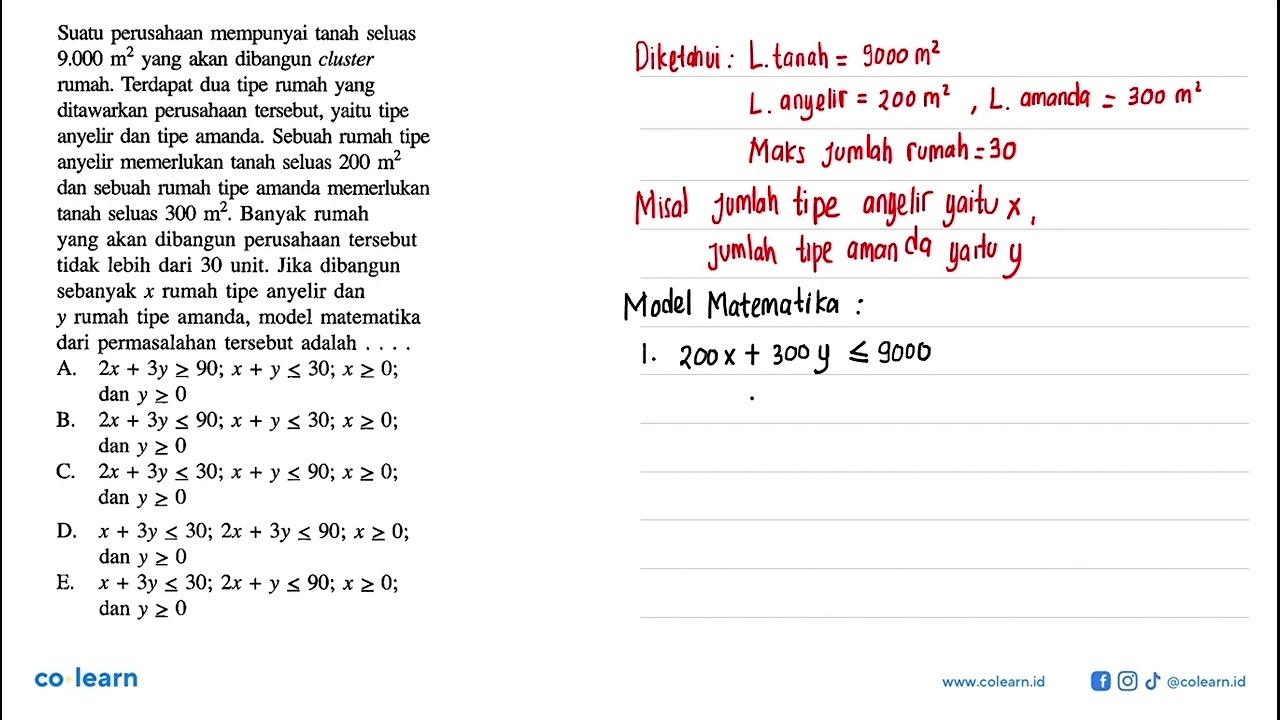 Suatu perusahaan mempunyai tanah seluas
9.000 m² yang akan dibangun cluster
rumah. Terdapat dua tipe rumah yang
ditawarkan perusahaan tersebut, yaitu tipe
anyelir dan tipe amanda. Sebuah rumah tipe
anyelir memerlukan tanah seluas 200 m²
dan sebuah rumah tipe amanda memerlukan
tanah seluas 300 m². Banyak rumah
yang akan dibangun perusahaan tersebut
tidak lebih dari 30 unit. Jika dibangun
sebanyak x rumah tipe anyelir dan
y rumah tipe amanda, model matematika
dari permasalahan tersebut adalah . . . .
A. 2x + 3y ≥ 90; x + y ≤ 30; x ≥ 0;
dan y ≥ 0
B. 2x + 3y ≤ 90; x + y ≤ 30; x ≥ 0;
dan y ≥ 0
C. 2x + 3y ≤ 30; x + y ≤ 90; x ≥ 0;
dan y ≥ 0
D. x + 3y ≤ 30; 2x + 3y ≤ 90; x ≥ 0;
dan y ≥ 0
E. x + 3y ≤ 30; 2x + y ≤ 90; x ≥ 0;
dan y ≥ 0
Diketahui : L. tanah = 9000 m²
L. anyelir = 200 m² , L. amanda = 300 m²
Maks jumlah rumah = 30
Misal jumlah tipe anyelir yaitu x,
jumlah tipe amanda yaitu y
Model Matematika :
1. 200x + 300y ≤ 9000
co learn
www.colearn.id
@colearn.id